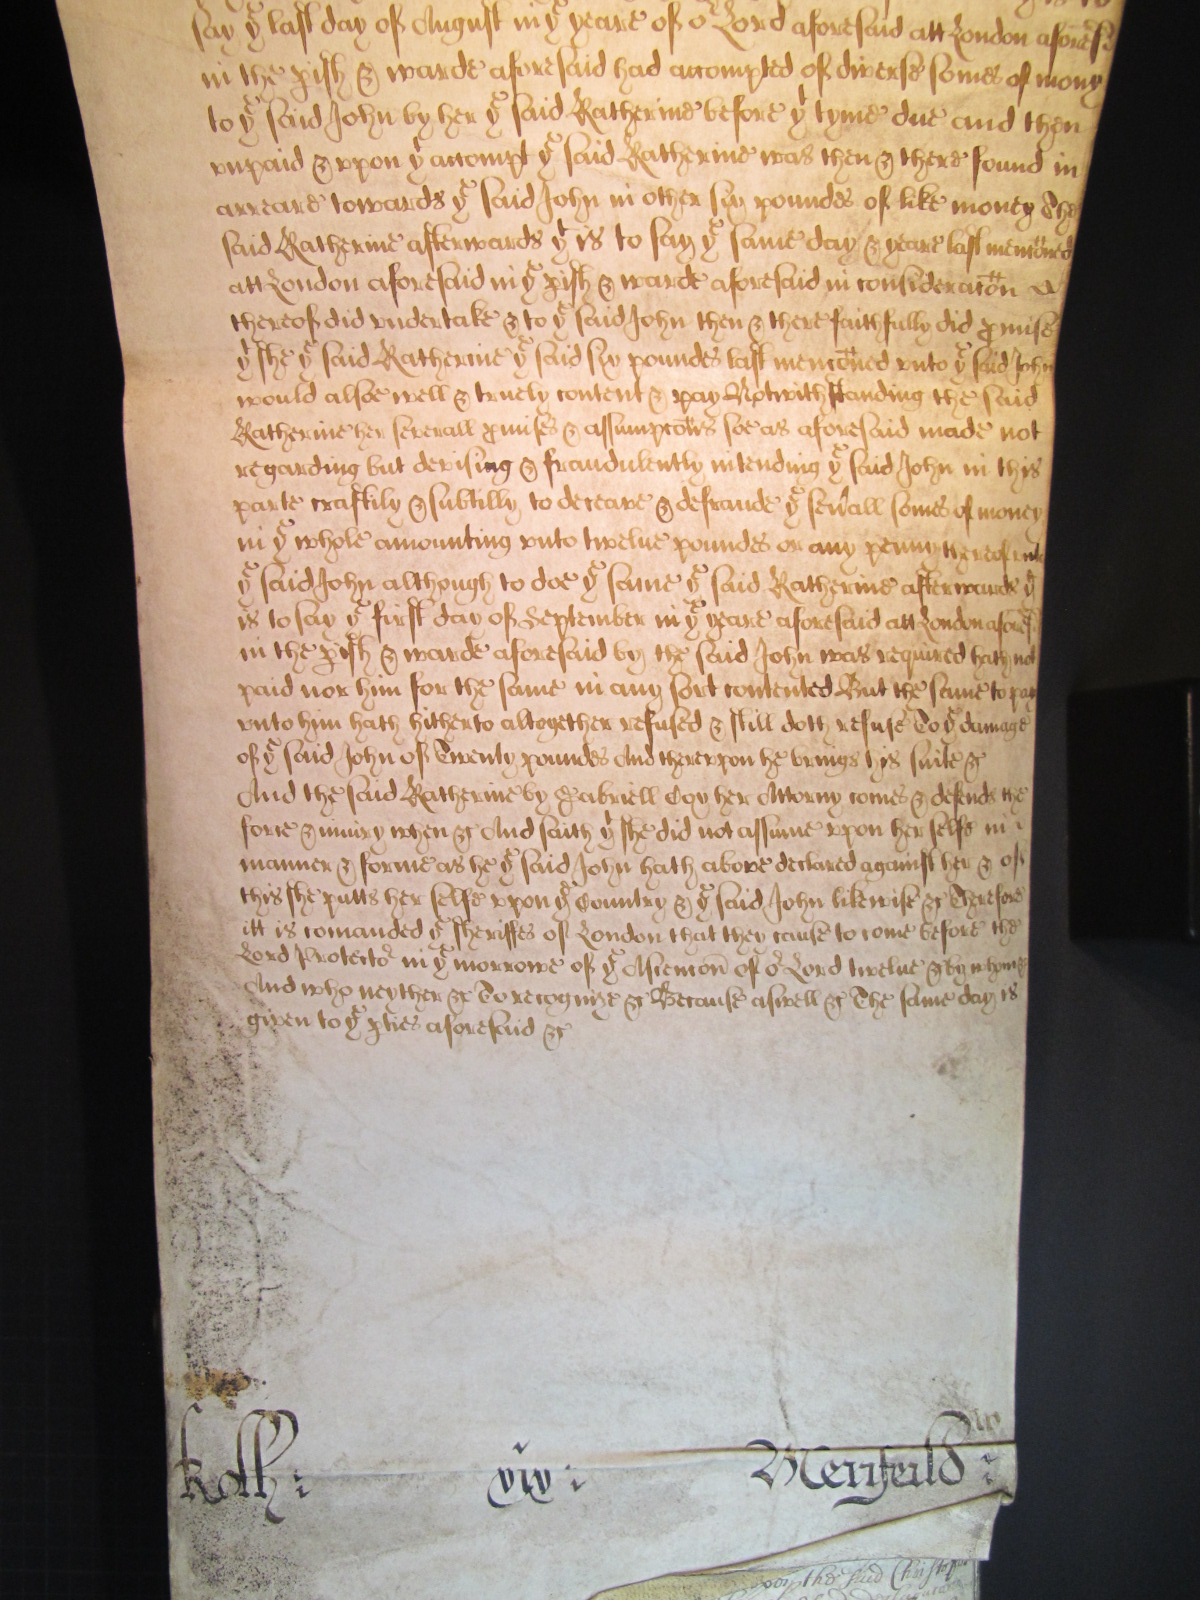 say yͤ last day of August in yͤ yeare of oʳ Lord aforesaid att London aforesᵈ
in the pish & warde aforesaid had accompted of diverse somes of mony
to yͤ said John by her yͤ said Katherine before yᵗ tyme due and then
vnpaid & vpon yᵗ accompt yͤ said Katherine was then & there found in
arreare towards yͤ said John in other six poundes of like money The
said Katherine afterwards yᵗ is to say yͤ same day & yeare last menc̃oned
att London aforesaid in yͤ pish & warde aforesaid in considerac̃on
thereof did vndertake & to yͤ said John then & there faithfully did pmise
yᵗ she yͤ said Katherine yͤ said six poundes last menc̃oned vnto yͤ said John
would alsoe well & truely content & pay Notwithstanding the said
Katherine her severall pmises & assumpc̃ons soe as aforesaid made not
regarding but devising & fraudulently intending yͤ said John in this
parte craftily & subtilly to deceave & defraude yͤ sev̄all somes of money
in yͤ whole amounting vnto twelve poundes or any penny thereof vnto
yͤ said John although to doe yͤ same yͤ said Katherine afterwards yᵗ
is to say yͤ first day of September in yͤ yeare aforesaid att London aforesᵈ
in the pish & warde aforesaid by the said John was required hath not
paid nor him for the same in any sort contented But the same to pay
vnto him hath hitherto altogether refused & still doth refuse To yͤ damage
of yͤ said John of Twenty poundes And therevpon he brings his suite &c
And the said Katherine by Gabriell Coy her Attorny comes & defends the
force & iniury when &c And saith yᵗ she did not assume vpon her selfe in
manner & forme as he yͤ said John hath above declared against her & of
this she putts her selfe vpon yͤ Country & yͤ said John likewise &c Therefore
itt is comanded yͤ sheriffes of London that they cause to come before the
Lord Protectoʳ in yͤ morrowe of yͤ Ascencon̄ of oʳ Lord twelve &c by whome
And who neyther &c To recognize &c Because aswell &c The same day is
given to yͤ pties aforesaid &c
xix :
Meryfeild :
vpon the said Christo